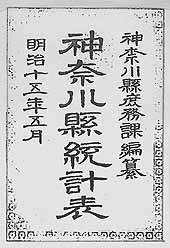 神奈川縣庶務課編纂
神奈川縣統計表
明治十五年五月